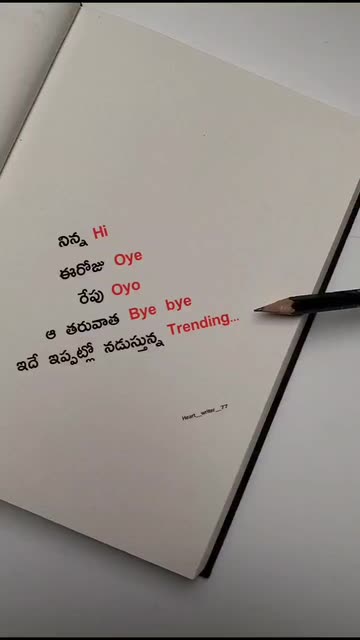 నిన్న Hi
ఈరోజు Oye
రేపు Oyo
ఆ తరువాత Bye bye
ఇదే ఇప్పట్లో నడుస్తున్న Trending...
Heart__writer__77